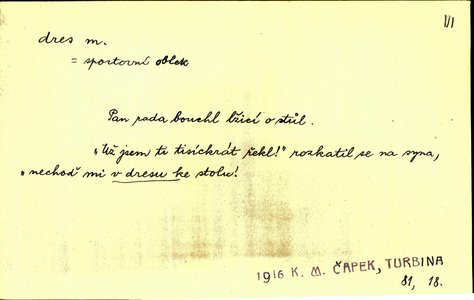 VI
dres m.
= sportovní oblek
Pan rada bouchl lžící o stůl.
„Už jsem ti tisíckrát řekl!" rozkatil se na syna,
„nechoď mi v dresu ke stolu!
1916 K. M. ČAPEK, TURBINA
81, 18.